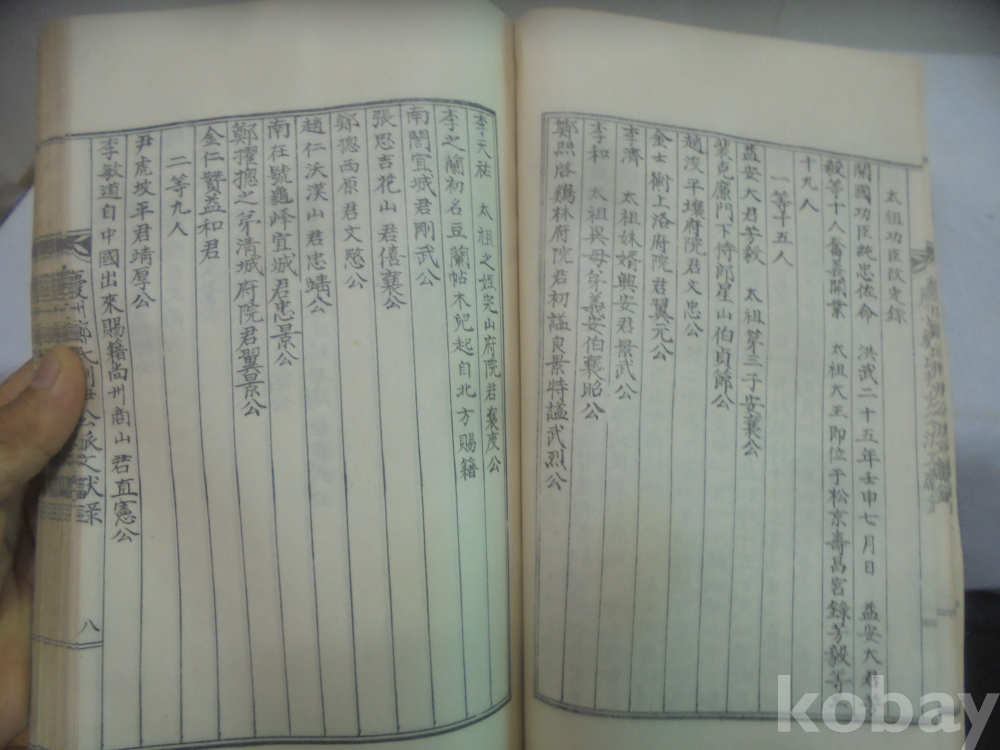 太祖功臣改定錄
開國功臣統忠佐命 洪武二十五年壬申七月日 益安大君芳
毅等十人奮義開業 太祖大王即位于松京壽昌宮錄芳毅等
十九人
一等十五人
益安大君芳毅 太祖第三子安襄公
裴克廉門下侍郎星山伯貞節公
趙浚平壤府院君文忠公
金士衡上洛府院君翼元公
李濟 太祖妹婿興安君景武公
李和 太祖異母弟義安伯襄昭公
鄭熙啓鷄林府院君初謚良景特謚武烈公
李天祐 太祖之姪完山府院君襄度公
李之蘭初名豆蘭帖木兒起自北方賜籍
南誾宜城君剛武公
張思吉花山君僖襄公
鄭摠西原君文愍公
趙仁沃漢山君忠靖公
南在號龜峰宜城君忠景公
鄭擢摠之弟淸城府院君翼景公
金仁贊益和君
二等九人
尹虎坡平君靖厚公
李敏道自中國出來賜籍尙州商山君直憲公
慶州鄭 公派文獻錄
八
kobay